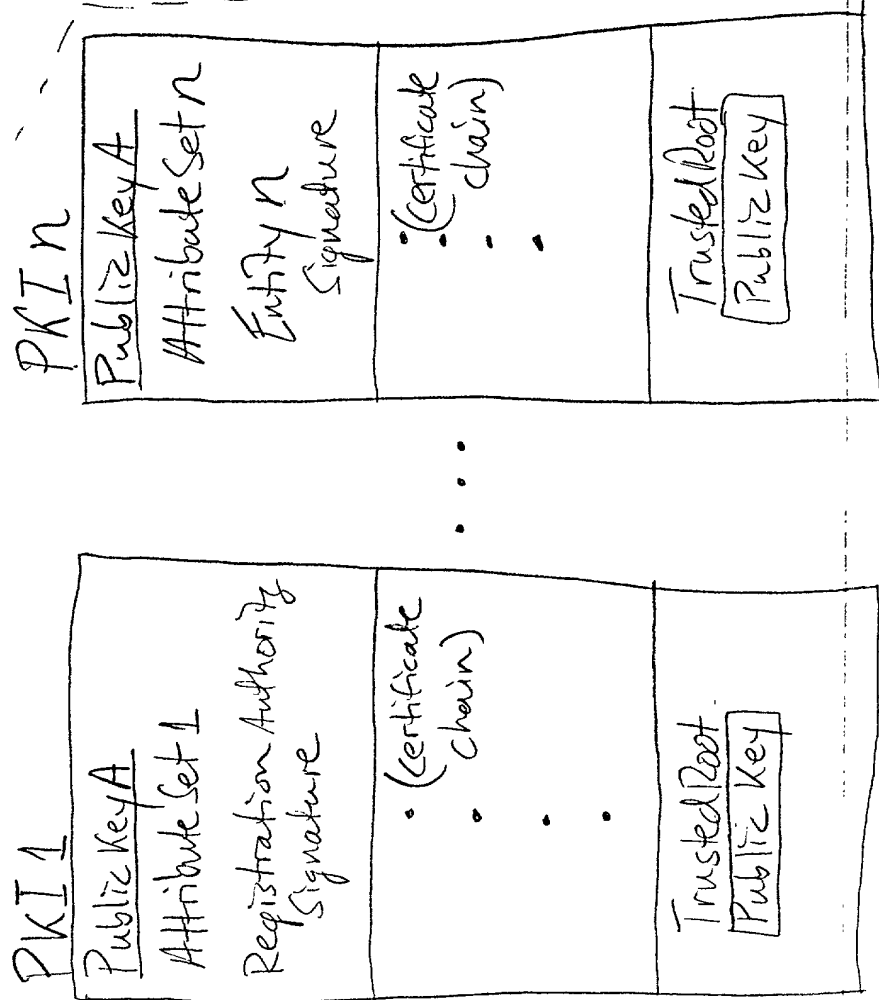 PKI1
Public Key A
Attribute Set 1
Registration Authority
Signature
(certificate
chain)
Trusted Root
Public Key
PKIn
Public Key A
Attribute Set n
Entity n
Signature
(certificate
chain)
Trusted Root
Public Key